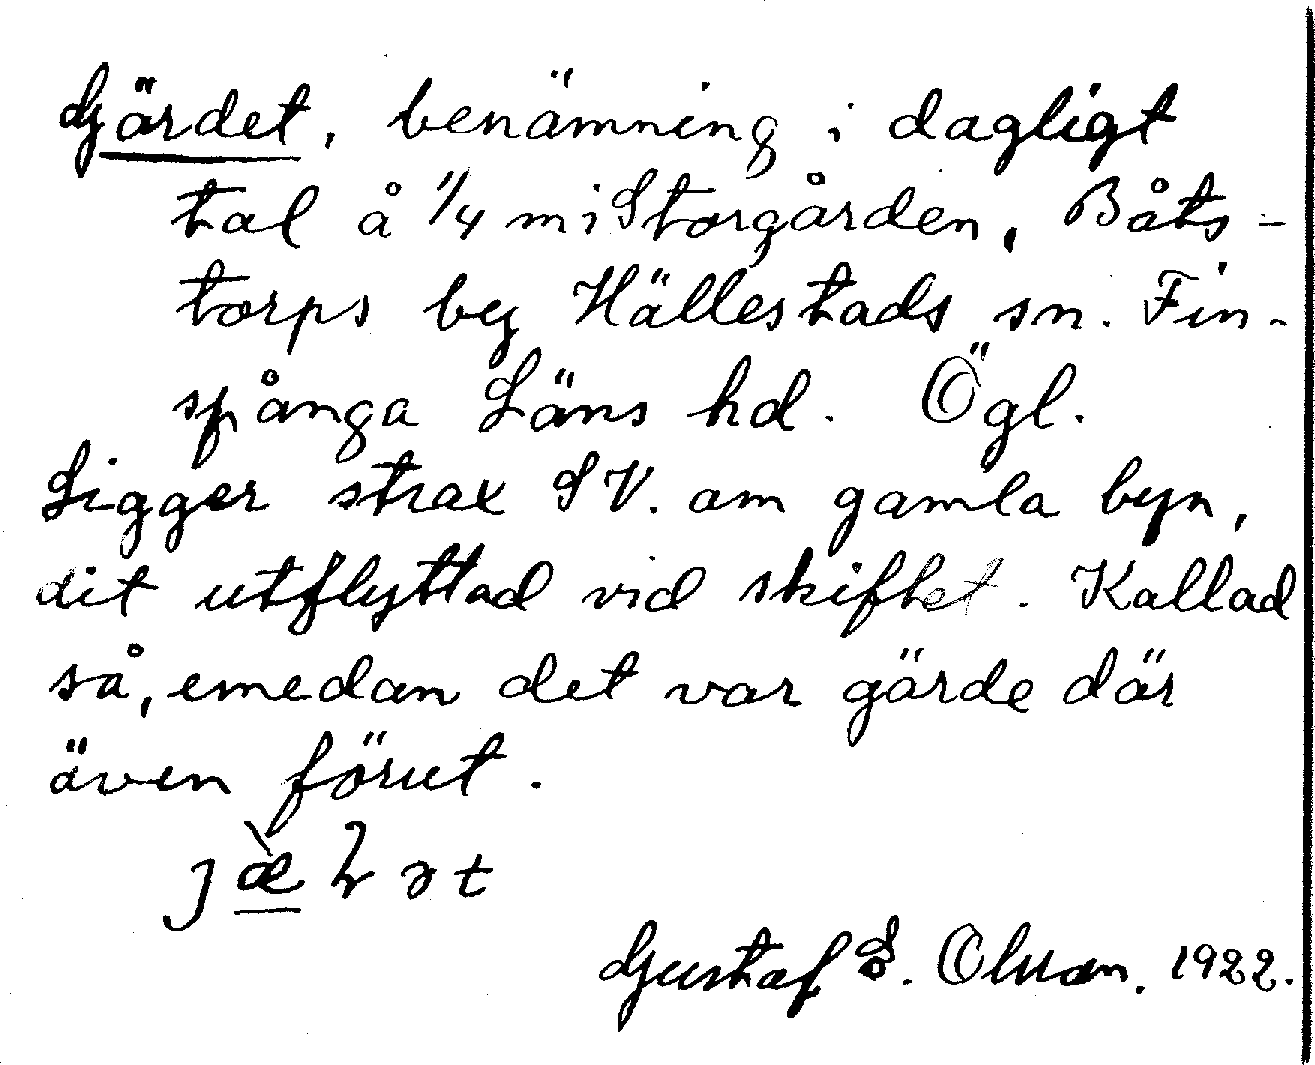 Gjärdet, benämning i dagligt
tal å 1/4 m i Storgården, Båts-
torps by Hällestads sn. Fin-
spånga Läns hd. Ögl.
Ligger strax SV. om gamla byn,
dit utflyttad vid skiftet. Kallad
så, emedan det var gärde där
även förut.
Gustaf S. Olsson. 1922.